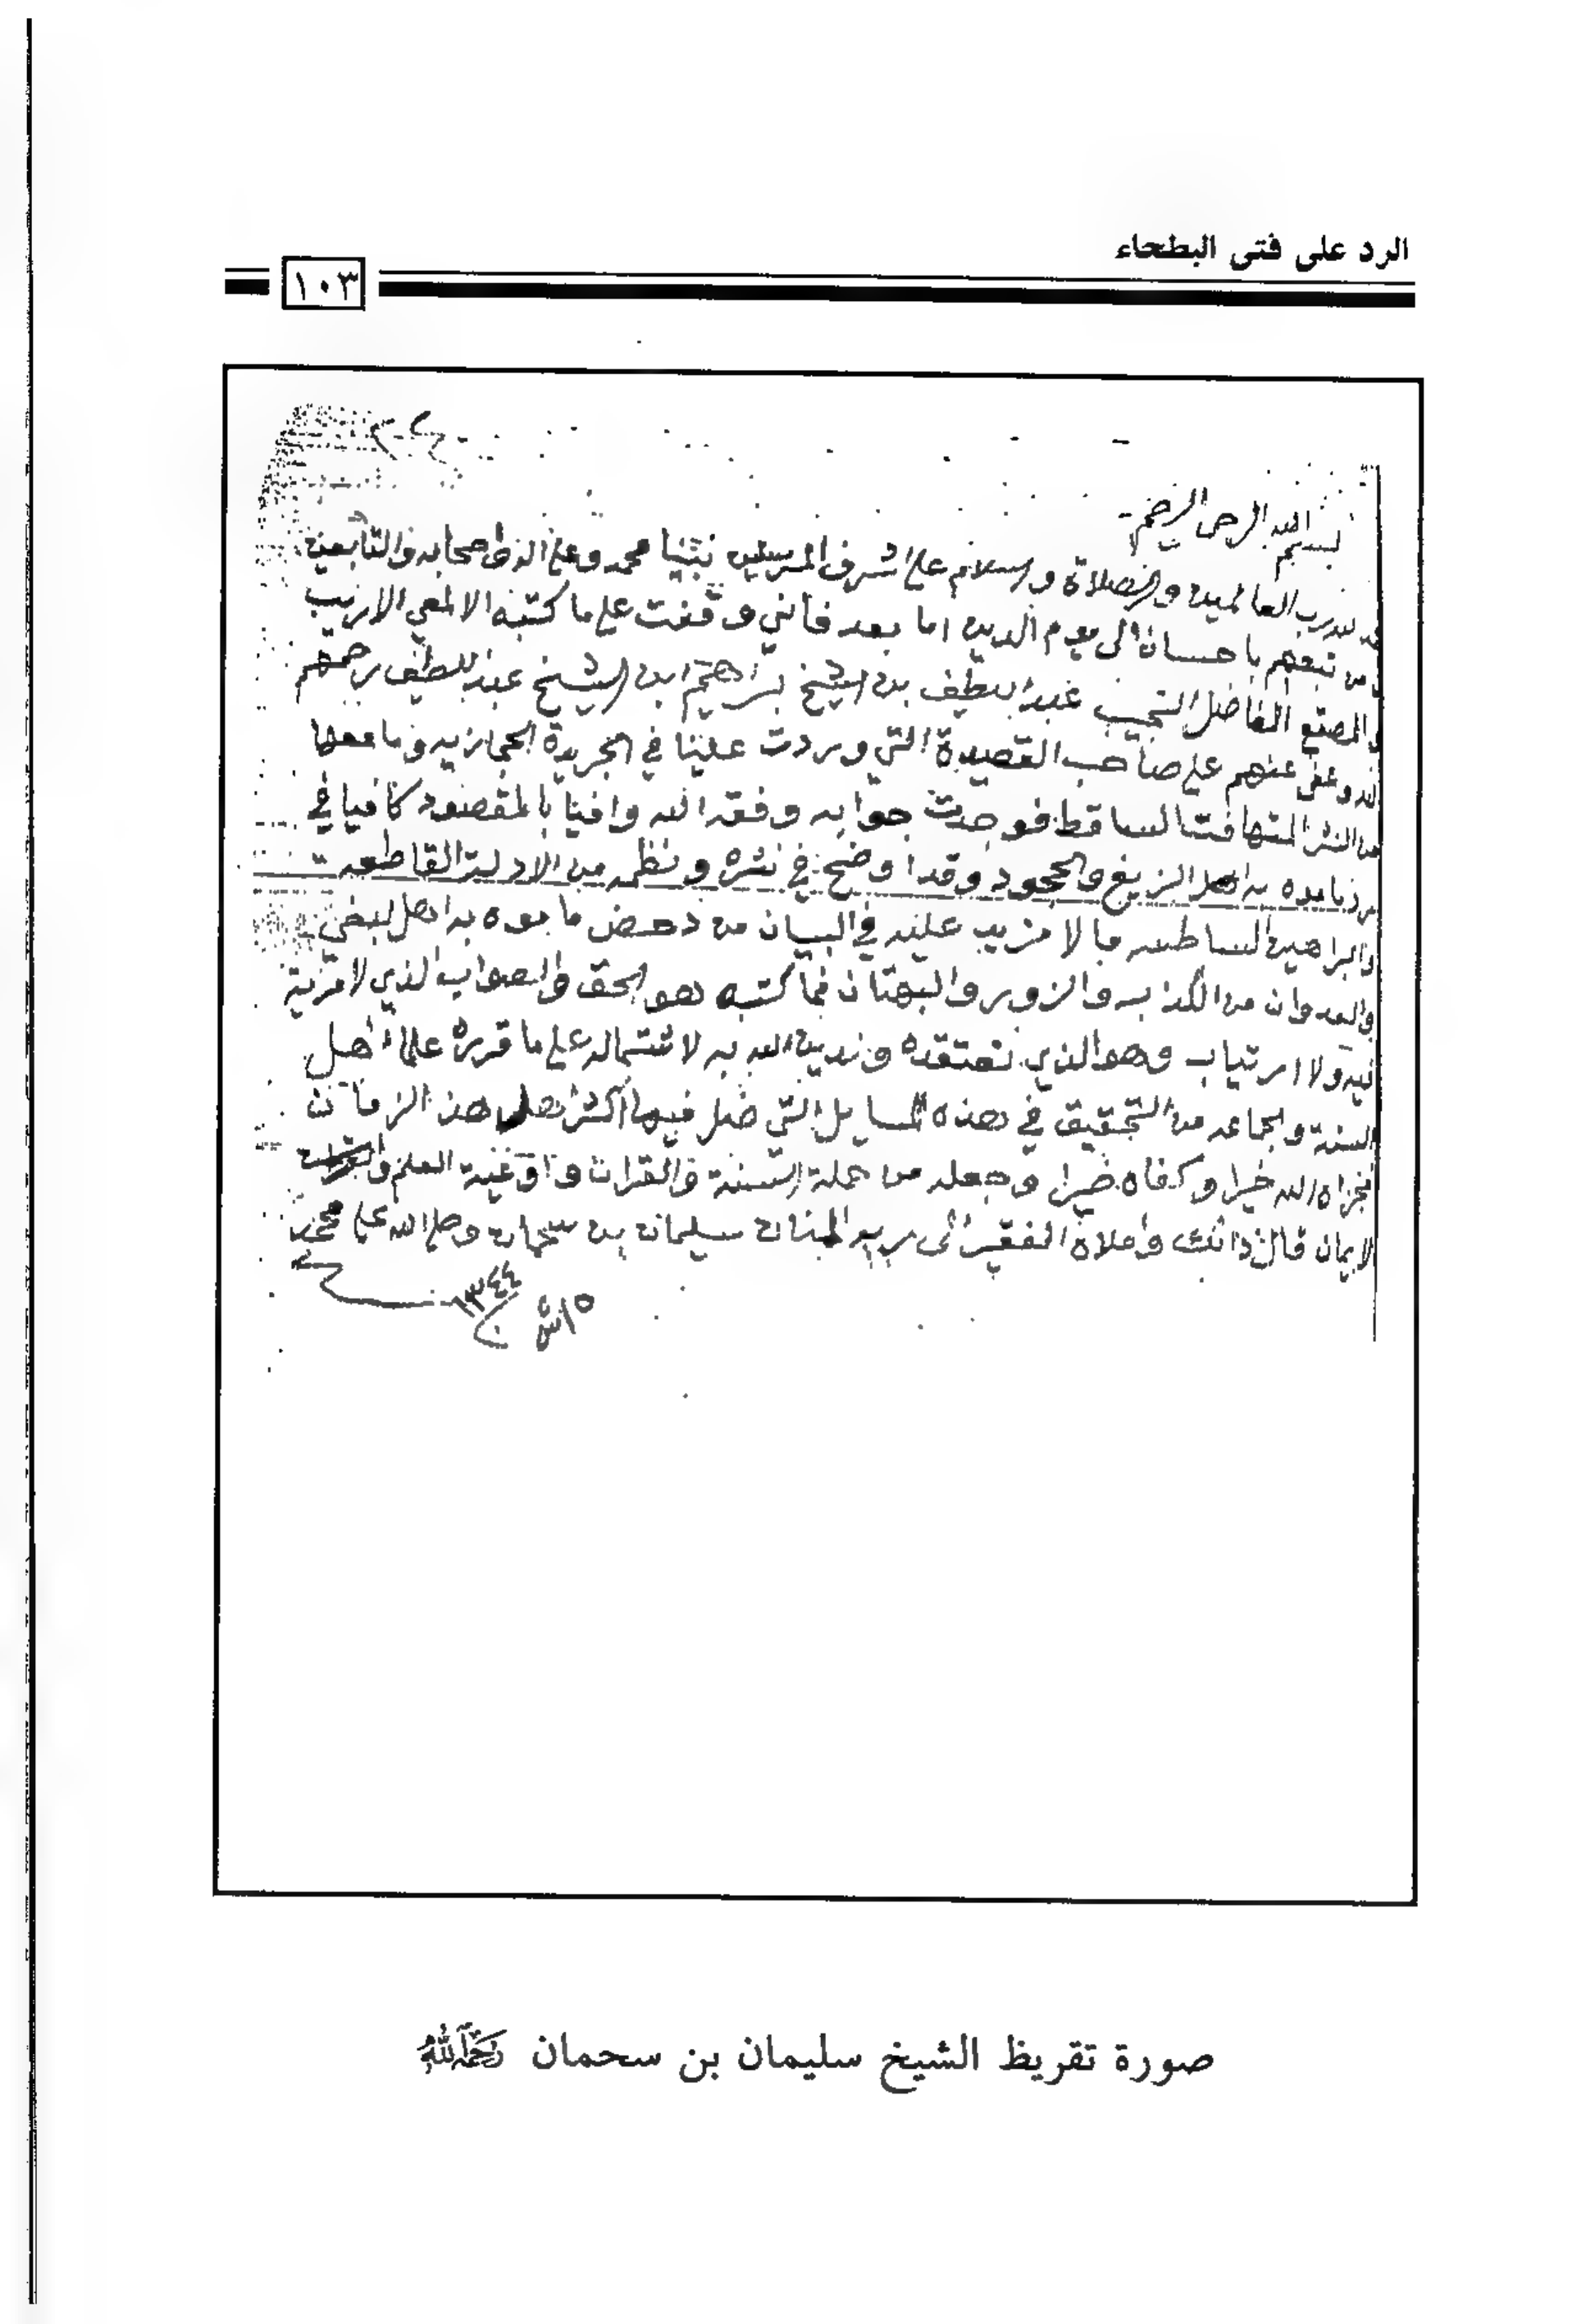 الرد على فتى البطحاء
١٠٣
بسم الله الرحمن الرحيم
لله رب العالمين والصلاة والسلام على اشرف المرسلين نبينا محمد وعلى اله واصحابه والتابعين
ومن تبعهم باحسان الى يوم الدين اما بعد فاني وقفت على ما كتبه الالمعي الاريب
والمصقع الفاضل النجيب عبد اللطيف بن الشيخ ابراهيم ابن الشيخ عبد اللطيف رحمهم
الله وعفى عنهم على صاحب القصيدة التي وردت علينا في الجريدة الحجازيه وما معها
من النثر المتهافت الساقط فوجدت جوابه وفقه الله وافيا بالمقصود كافيا في
به اهل الزيغ والجحود وقد اوضح في نثره ونظمه من الادلة القاطعه
والبراهين الساطعه ما لا مزيد عليه في البيان من دحض ما موه به اهل البغي
والعدوان من الكذب والزور والبهتان فما كتبه هو الحق والصواب الذي لا مرية
فيه ولا ارتياب وهو الذي نعتقده وندين الله به لاشتماله على ما قرره علماء اهل
السنة والجماعه من التحقيق في هذه المسايل التي ضل فيها اكثر اهل هذ الزمان
فجزاه الله خيرا وكفاه ضيرا وجعله من حملة السنة والقران واوعية العلم
الايمان قال ذالك واملاه الفقير الى ربه المنان سليمان بن سحمان وصلى الله على محمد
١٥ ش ١٣٤٤
صورة تقريظ الشيخ سليمان بن سحمان رحمه الله